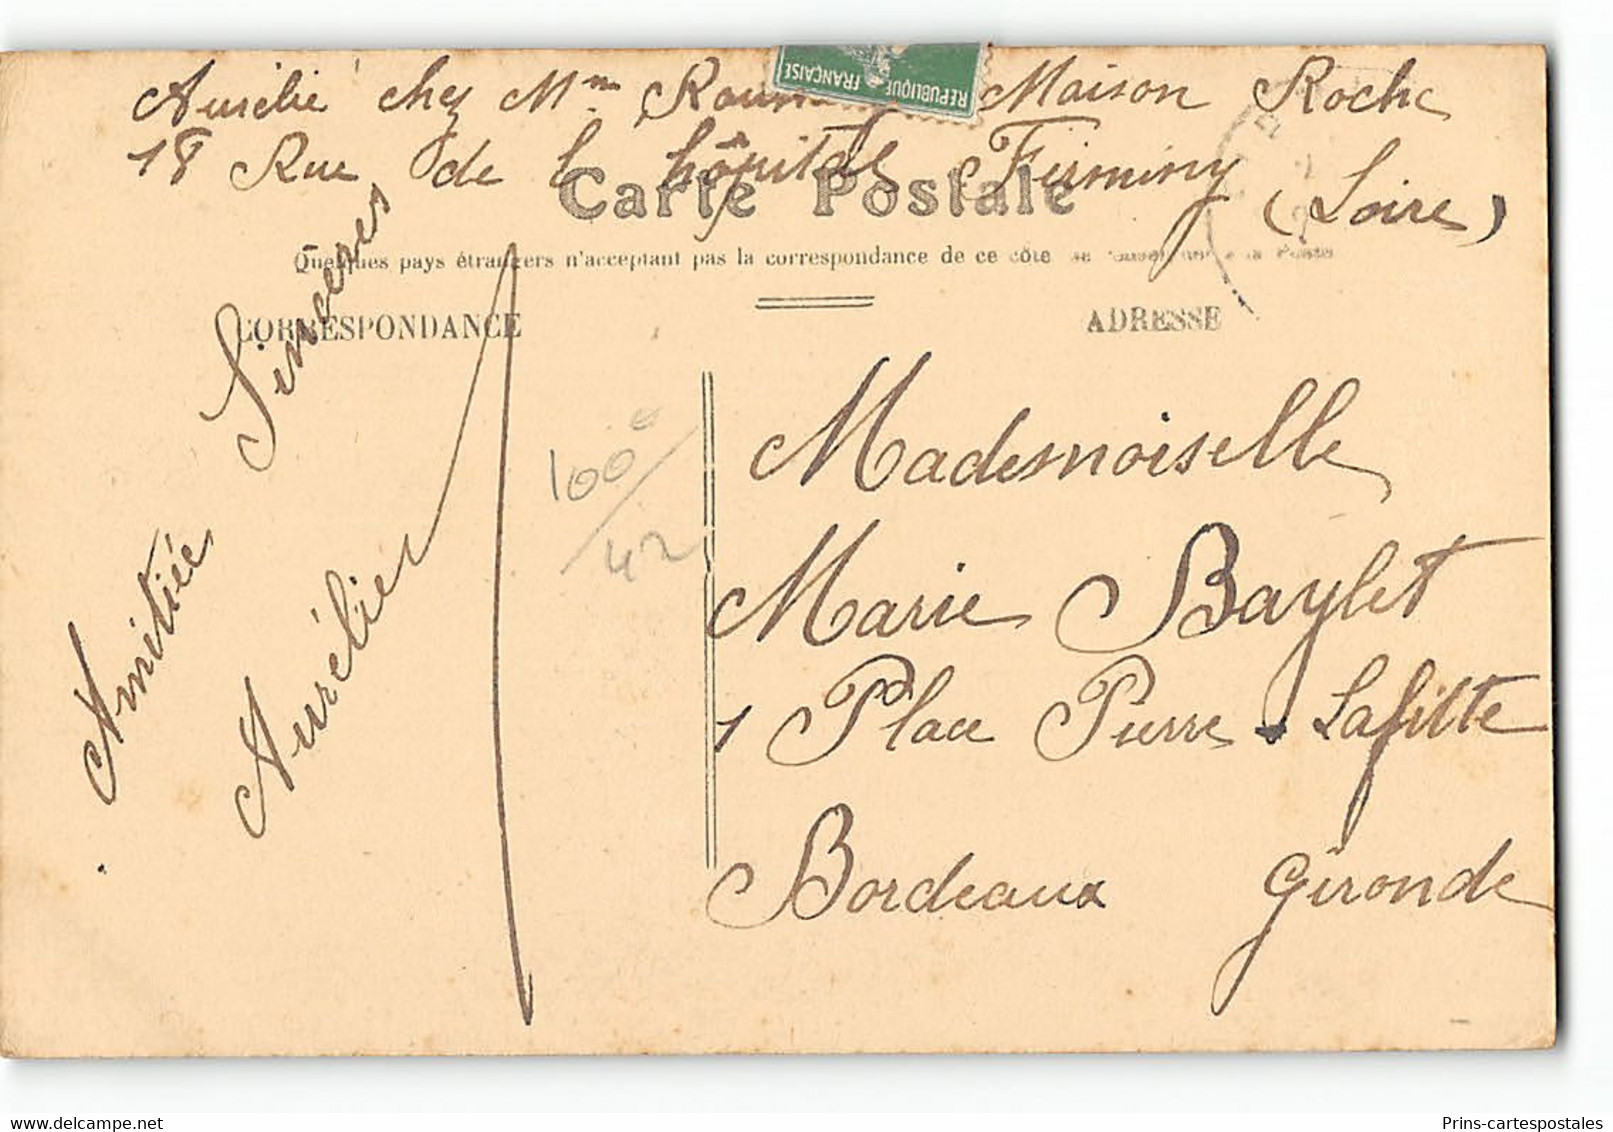 Aurélie chez Mme Maison Roche
18 Rue de l hôpital Firminy (Loire)
RÉPUBLIQUE FRANÇAISE
Carte Postale
Quelques pays étrangers n'acceptant pas la correspondance de ce côté
CORRESPONDANCE
ADRESSE
Amitiée Sincères
Aurélie
100€/42
Mademoiselle
Marie Baylet
1 Place Pierre Lafitte
Bordeaux Gironde
Prins-cartespostales